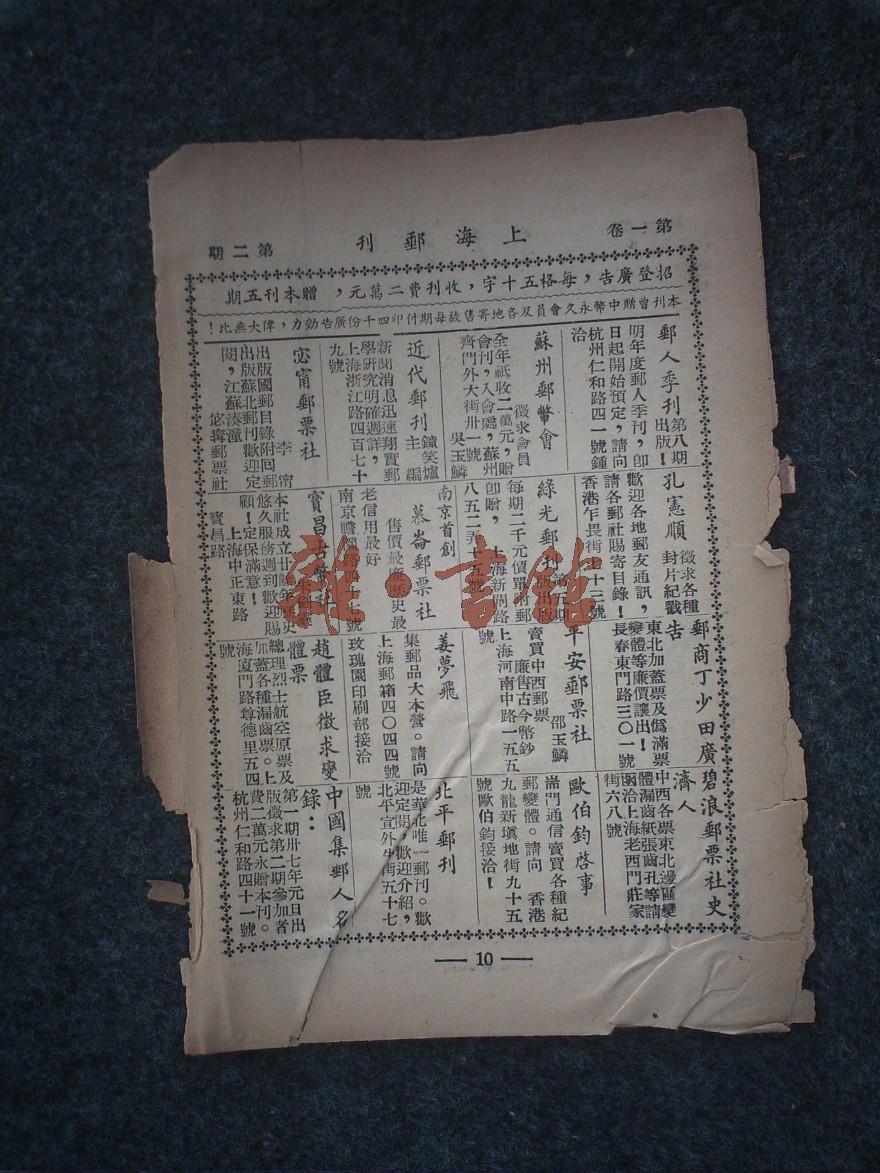 第一卷 上海郵刊 第二期
招登廣告，每格五十字，收刊費二萬元，贈本刊五期
本刊曾贈中幣永久會員及各地寄售故每期付印四千份廣告効力，偉大無比！
郵人季刊 第八期出版！
明年度郵人季刊，卽
日起開始預定，請向
杭州仁和路四一號鍾
洽
蘇州郵幣會
徵求會員
全年祇收二萬元，贈
會刊，入會處，蘇州
齊門外大街卅一號
吳玉鱗
近代郵刊
鐘笑爐主編
新聞消息迅速翔實郵
學研究明確週詳，
上海浙江路四百七十
九號
宓甯郵票社
李甯
出版國郵目錄附回郵
出版蘇北郵刊歡迎定
閱，江蘇湊潼
宓甯郵票社
孔憲順 徵求各種封片紀戳
歡迎各地郵友通訊，
請各郵社賜寄目錄！
香港乍畏街七十三號
綠光郵刊
每期二千元價單附郵
卽贈，上海新閘路
八五二弄十五號
南京首創
慕崙郵票社
售價最廉歷史最
老信用最好
南京
寶昌古
本社成立廿
悠久服務週到歡迎賜
顧！定保滿意！
上海中正東路
寶昌路
郵商丁少田廣告
東北加蓋票及僞滿票
變體等廉價讓出！
長春東門路三〇一號
平安郵票社
邵玉鱗
賣買中西郵票
廉售古今幣鈔
上海河南中路一五五
號
姜夢飛
集郵品大本營。請向
上海郵箱四〇四四號
玫瑰園印刷部接洽
趙體臣徵求變體票
總理烈士航空原票及
加蓋各種漏齒票。上
海厦門路尊德里五四
號
碧浪郵票社史濟人
中西各票東北邊區變
體漏齒紙張齒孔等請
函洽上海老西門莊家
街六八號
歐伯鈞啓事
耑門通信賣買各種紀
郵變體。請向 香港
九龍新填地街九十五
號歐伯鈞接洽！
北平郵刊
是華北唯一郵刊。歡
迎定閱，歡迎介紹，
北平宣外牛街五十七
號
中國集郵人名錄：
第一期卅七年元旦出
版徵求第二期參加者
費二萬元永贈本刊。
杭州仁和路四十一號
— 10 —
雜·書館